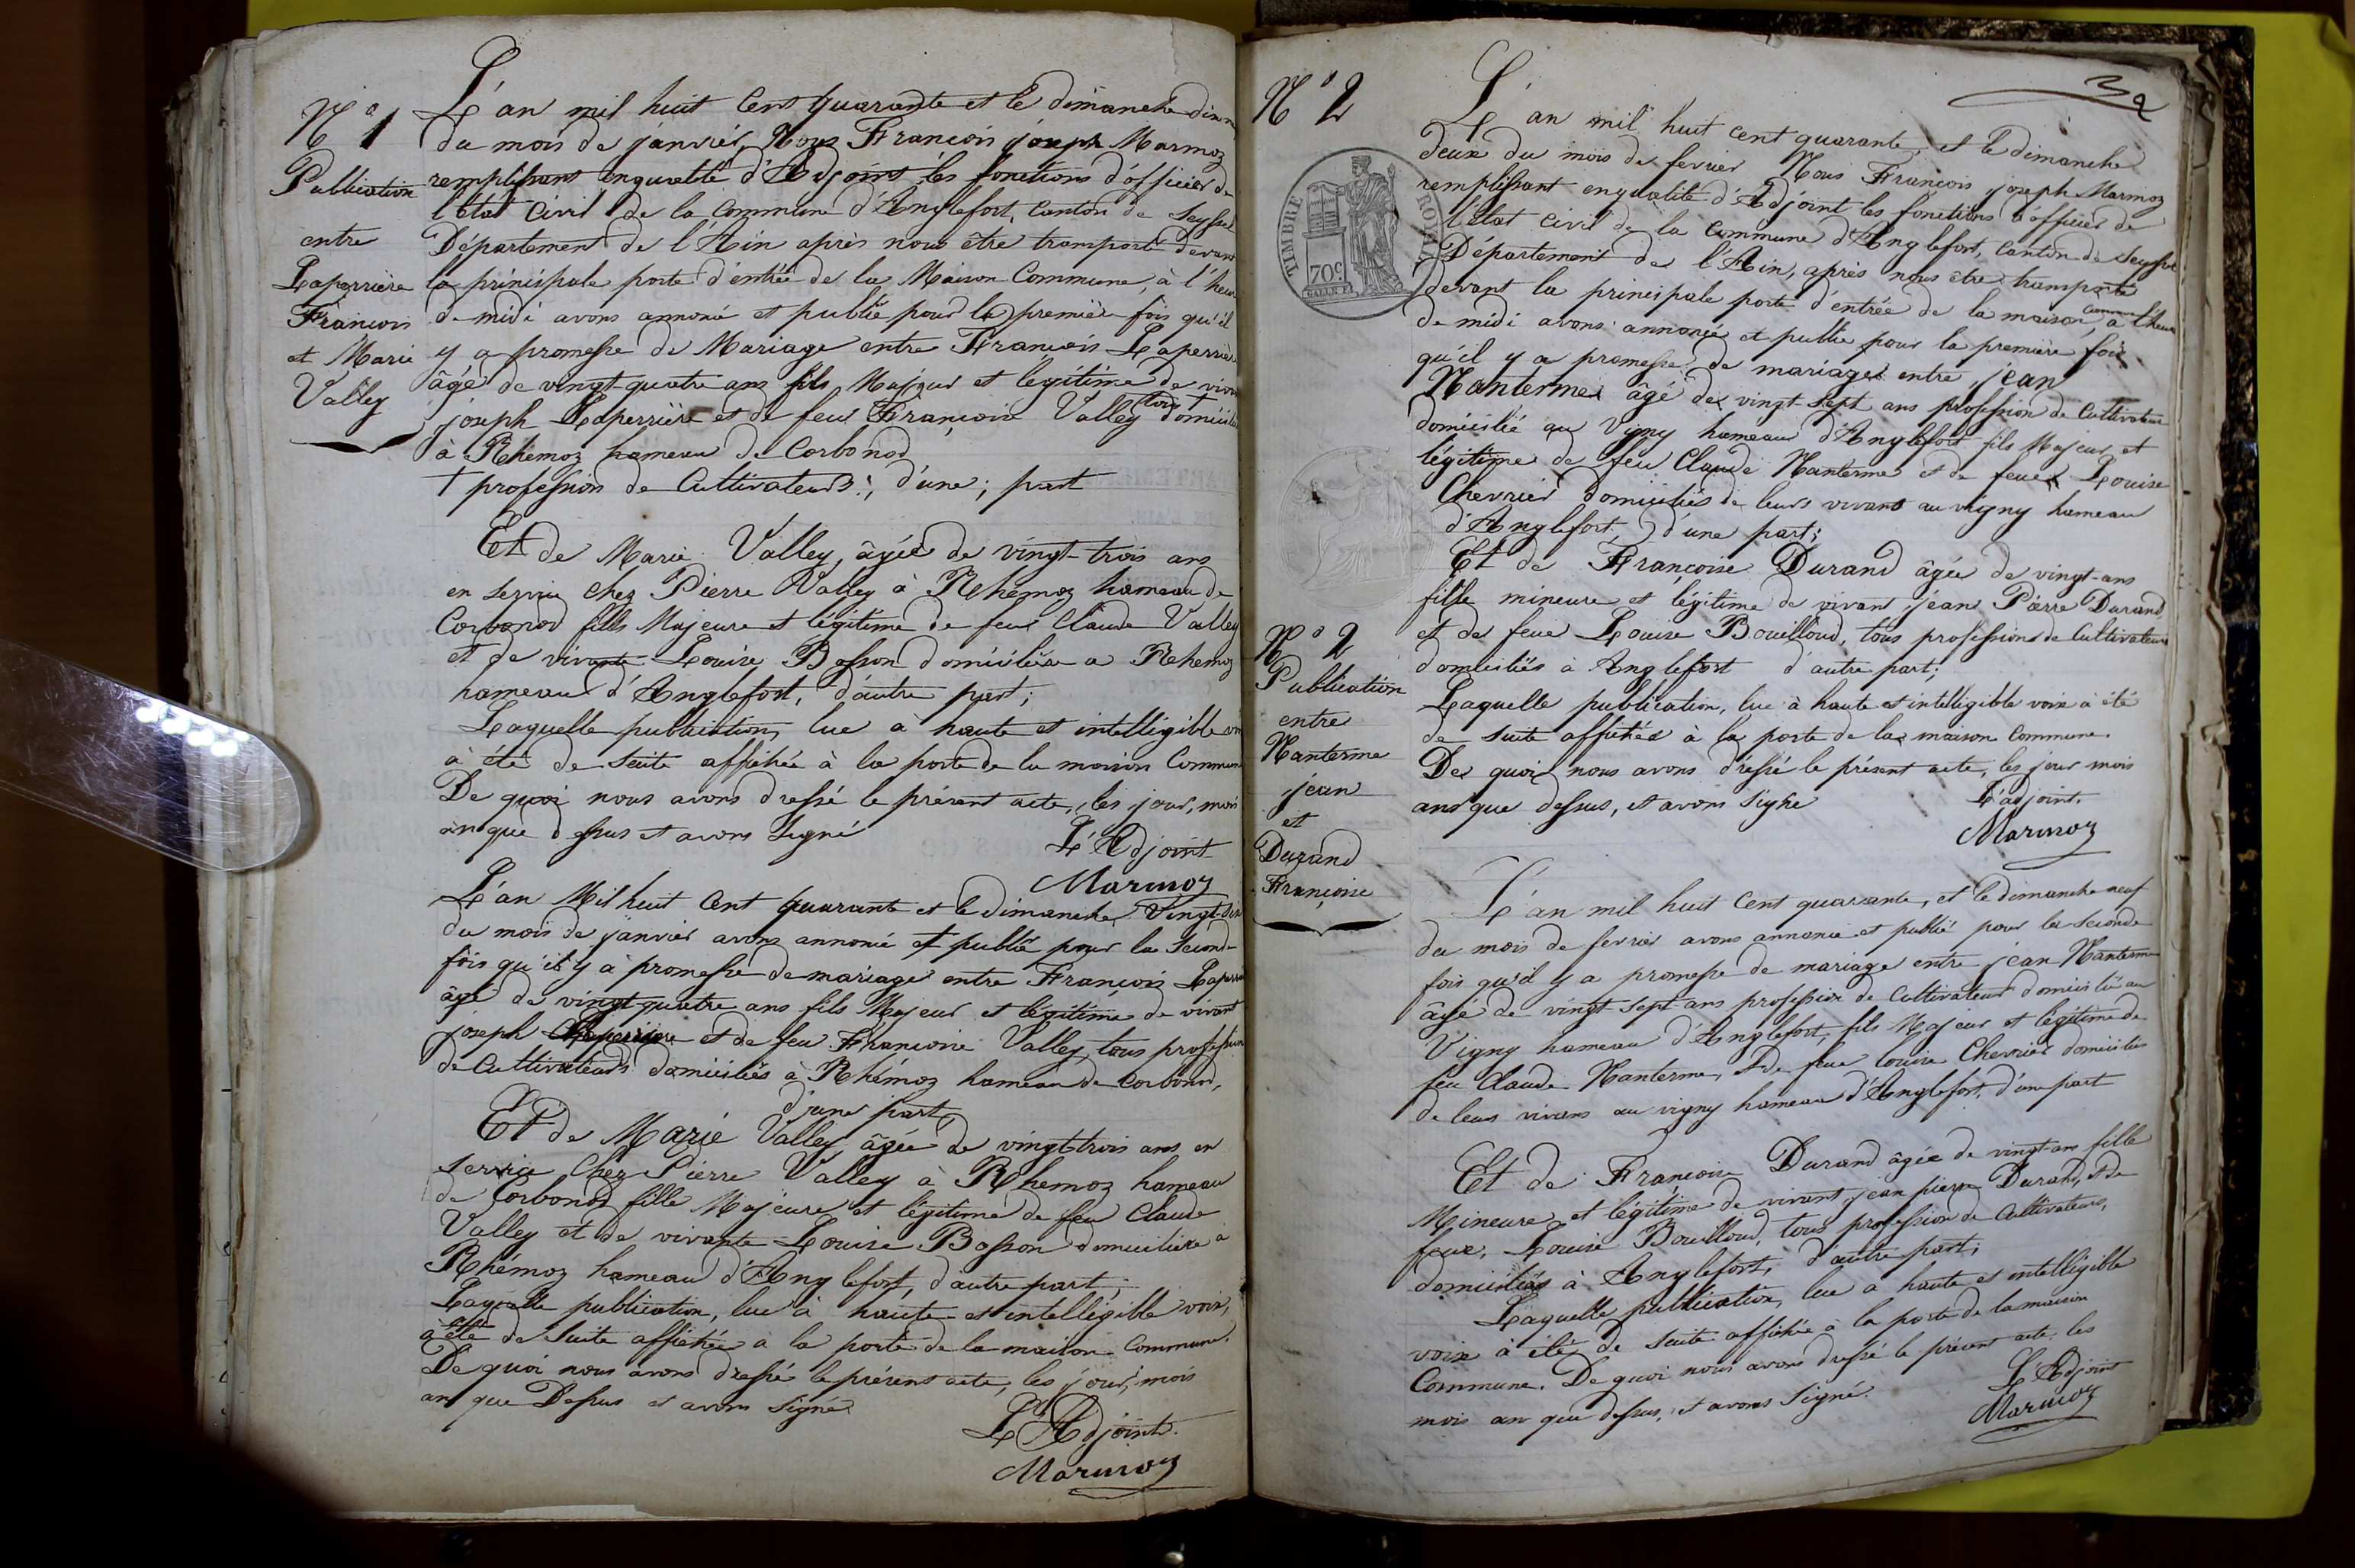 N° 1
Publication
entre
Laperrière
François
et Marie
Valley
L'an mil huit Cent quarante et le dimanche
du mois de janvier, Nous François joseph Marmoz
remplissant enqualité d'Adjoint les fonctions d'officier de
l'état Civil de la Commune d'Anglefort, Canton de Seyssel
Département de l'Ain après nous être transporté devant
la principale porte d'entrée de la Maison Commune, à l'heure
de midi avons annoncé et publié pour la première fois qu'il
y a promesse de Mariage entre François Laperrière
âgé de vingt-quatre ans fils Majeur et légitime de vivant
joseph Laperrière et de feue Françoise Valley tous domiciliés
à Rhémoz hameau de Corbonod
† profession de Cultivateurs; d'une; part
Et de Marie Valley, âgée de vingt-trois ans
en service chez Pierre Valley à Rhémoz hameau de
Corbonod fille Majeure et légitime de feu Claude Valley
et de vivante Louise Bosson domiciliée a Rhemoz
hameau d'Anglefort, d'autre part;
Laquelle publication, lue à haute et intelligible voix
à été de suite affichée à la porte de la maison Commune
De quoi nous avons dressé le présent acte, les jour, mois
an que dessus et avons signé
L'Adjoint
Marmoz
L'an Mil huit Cent quarante et le dimanche
du mois de janvier avons annoncé et publié pour la seconde
fois qu'il y à promesse de mariage entre François
âgé de vingt-quatre ans fils Majeur et légitime de vivant
joseph et de feu Françoise Valley, tous profession
de Cultivateurs domiciliés à Rhémoz hameau de Corbonod,
d'une part,
Et de Marie Valley, âgée de vingt-trois ans en
service chez Pierre Valley à Rhemoz hameau
de Corbonod fille Majeure et légitime de feu Claude
Valley et de vivante Louise Bosson domiciliée à
Rhémoz hameau d'Anglefort, d'autre part;
Laquelle publication, lue à haute et intelligible voix,
à été de suite affichée a la porte de la maison Commune.
De quoi nous avons dressé le présent acte, les jour, mois
an que Dessus et avons signé
L'Adjoint.
Marmoz
N° 2
TIMBRE ROYAL
70c
L'an mil huit cent quarante, et le dimanche
deux du mois de fevrier Nous François joseph Marmoz
remplissant enqualité d'Adjoint les fonctions d'officier de
l'état Civil de la Commune d'Anglefort, Canton de Seyssel
Département de l'Ain, après nous être transporté
devant la principale porte d'entrée de la maison, commune à l'heure
de midi avons annoncé et publié pour la première fois
qu'il y a promesse de mariage entre jean
Nanterme âgé de vingt-sept ans profession de Cultivateur
domicilié au Vigny hameau d'Anglefort fils Majeur et
légitime de feu Claude Nanterme et de feue Louise
Chevrier domiciliés de leurs vivans au vigny hameau
d'Anglefort, d'une part;
Et de Françoise Durand âgée de vingt-ans
fille mineure et légitime de vivant jean Pierre Durand
et de feue Louise Bouilloud, tous profession de Cultivateurs
domiciliés à Anglefort d'autre part;
Laquelle publication, lue à haute et intelligible voix à été
de suite affichée à la porte de la maison Commune.
De quoi nous avons dressé le présent acte, les jour mois
an que dessus, et avons signé
L'adjoint.
Marmoz
N° 2
Publication
entre
Nanterme
jean
et
Durand
Françoise
L'an mil huit Cent quarante, et le dimanche neuf
du mois de fevrier avons annoncé et publié pour la seconde
fois qu'il y a promesse de mariage entre jean Nanterme
âgé de vingt-sept ans profession de Cultivateur domicilié au
Vigny hameau d'Anglefort, fils Majeur et légitime de
feu Claude Nanterme, et de feue Louise Chevrier domiciliés
de leurs vivans au vigny hameau d'Anglefort, d'une part
Et de Françoise Durand âgée de vingt-ans fille
Mineure et légitime de vivant jean pierre Durand, et de
feue, Louise Bouilloud, tous profession de Cultivateurs,
domiciliés à Anglefort, d'autre part;
Laquelle publication, lue a haute et intelligible
voix à été de suite affichée à la porte de la maison
Commune. De quoi nous avons dressé le présent acte, les
mois an que dessus, et avons signé.
L'Adjoint
Marmoz